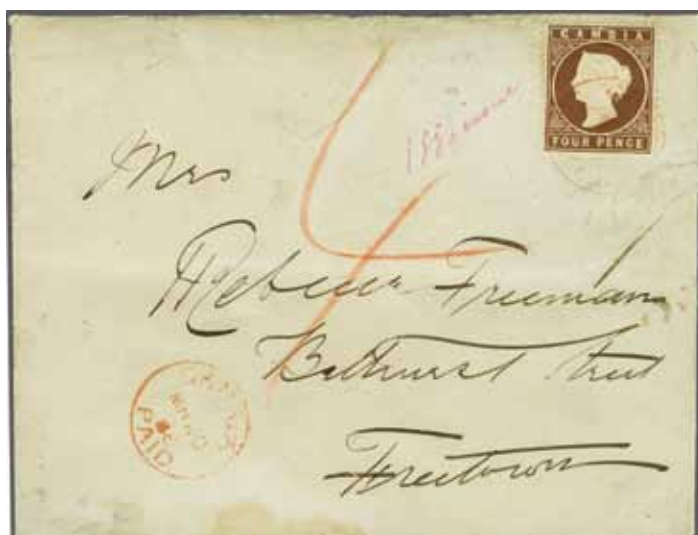 GAMBIA
FOUR PENCE
4
Mrs
Rebecca Freeman
Bathurst Street
Freetown
PAID